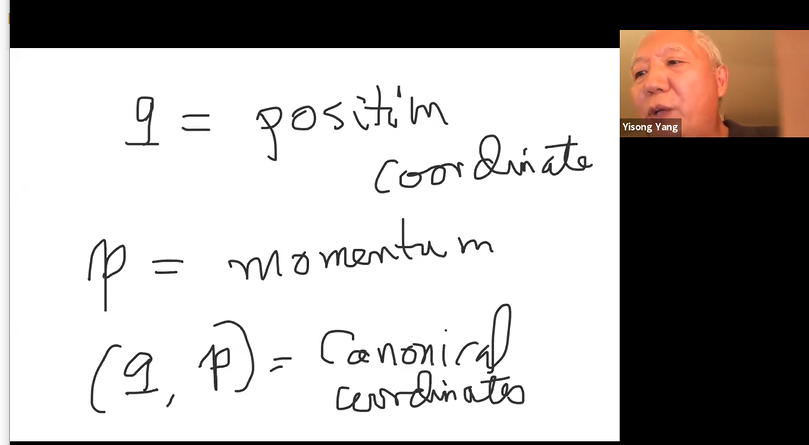 q = position
coordinate
p = momentum
(q, p) = Canonical
coordinates
Yisong Yang